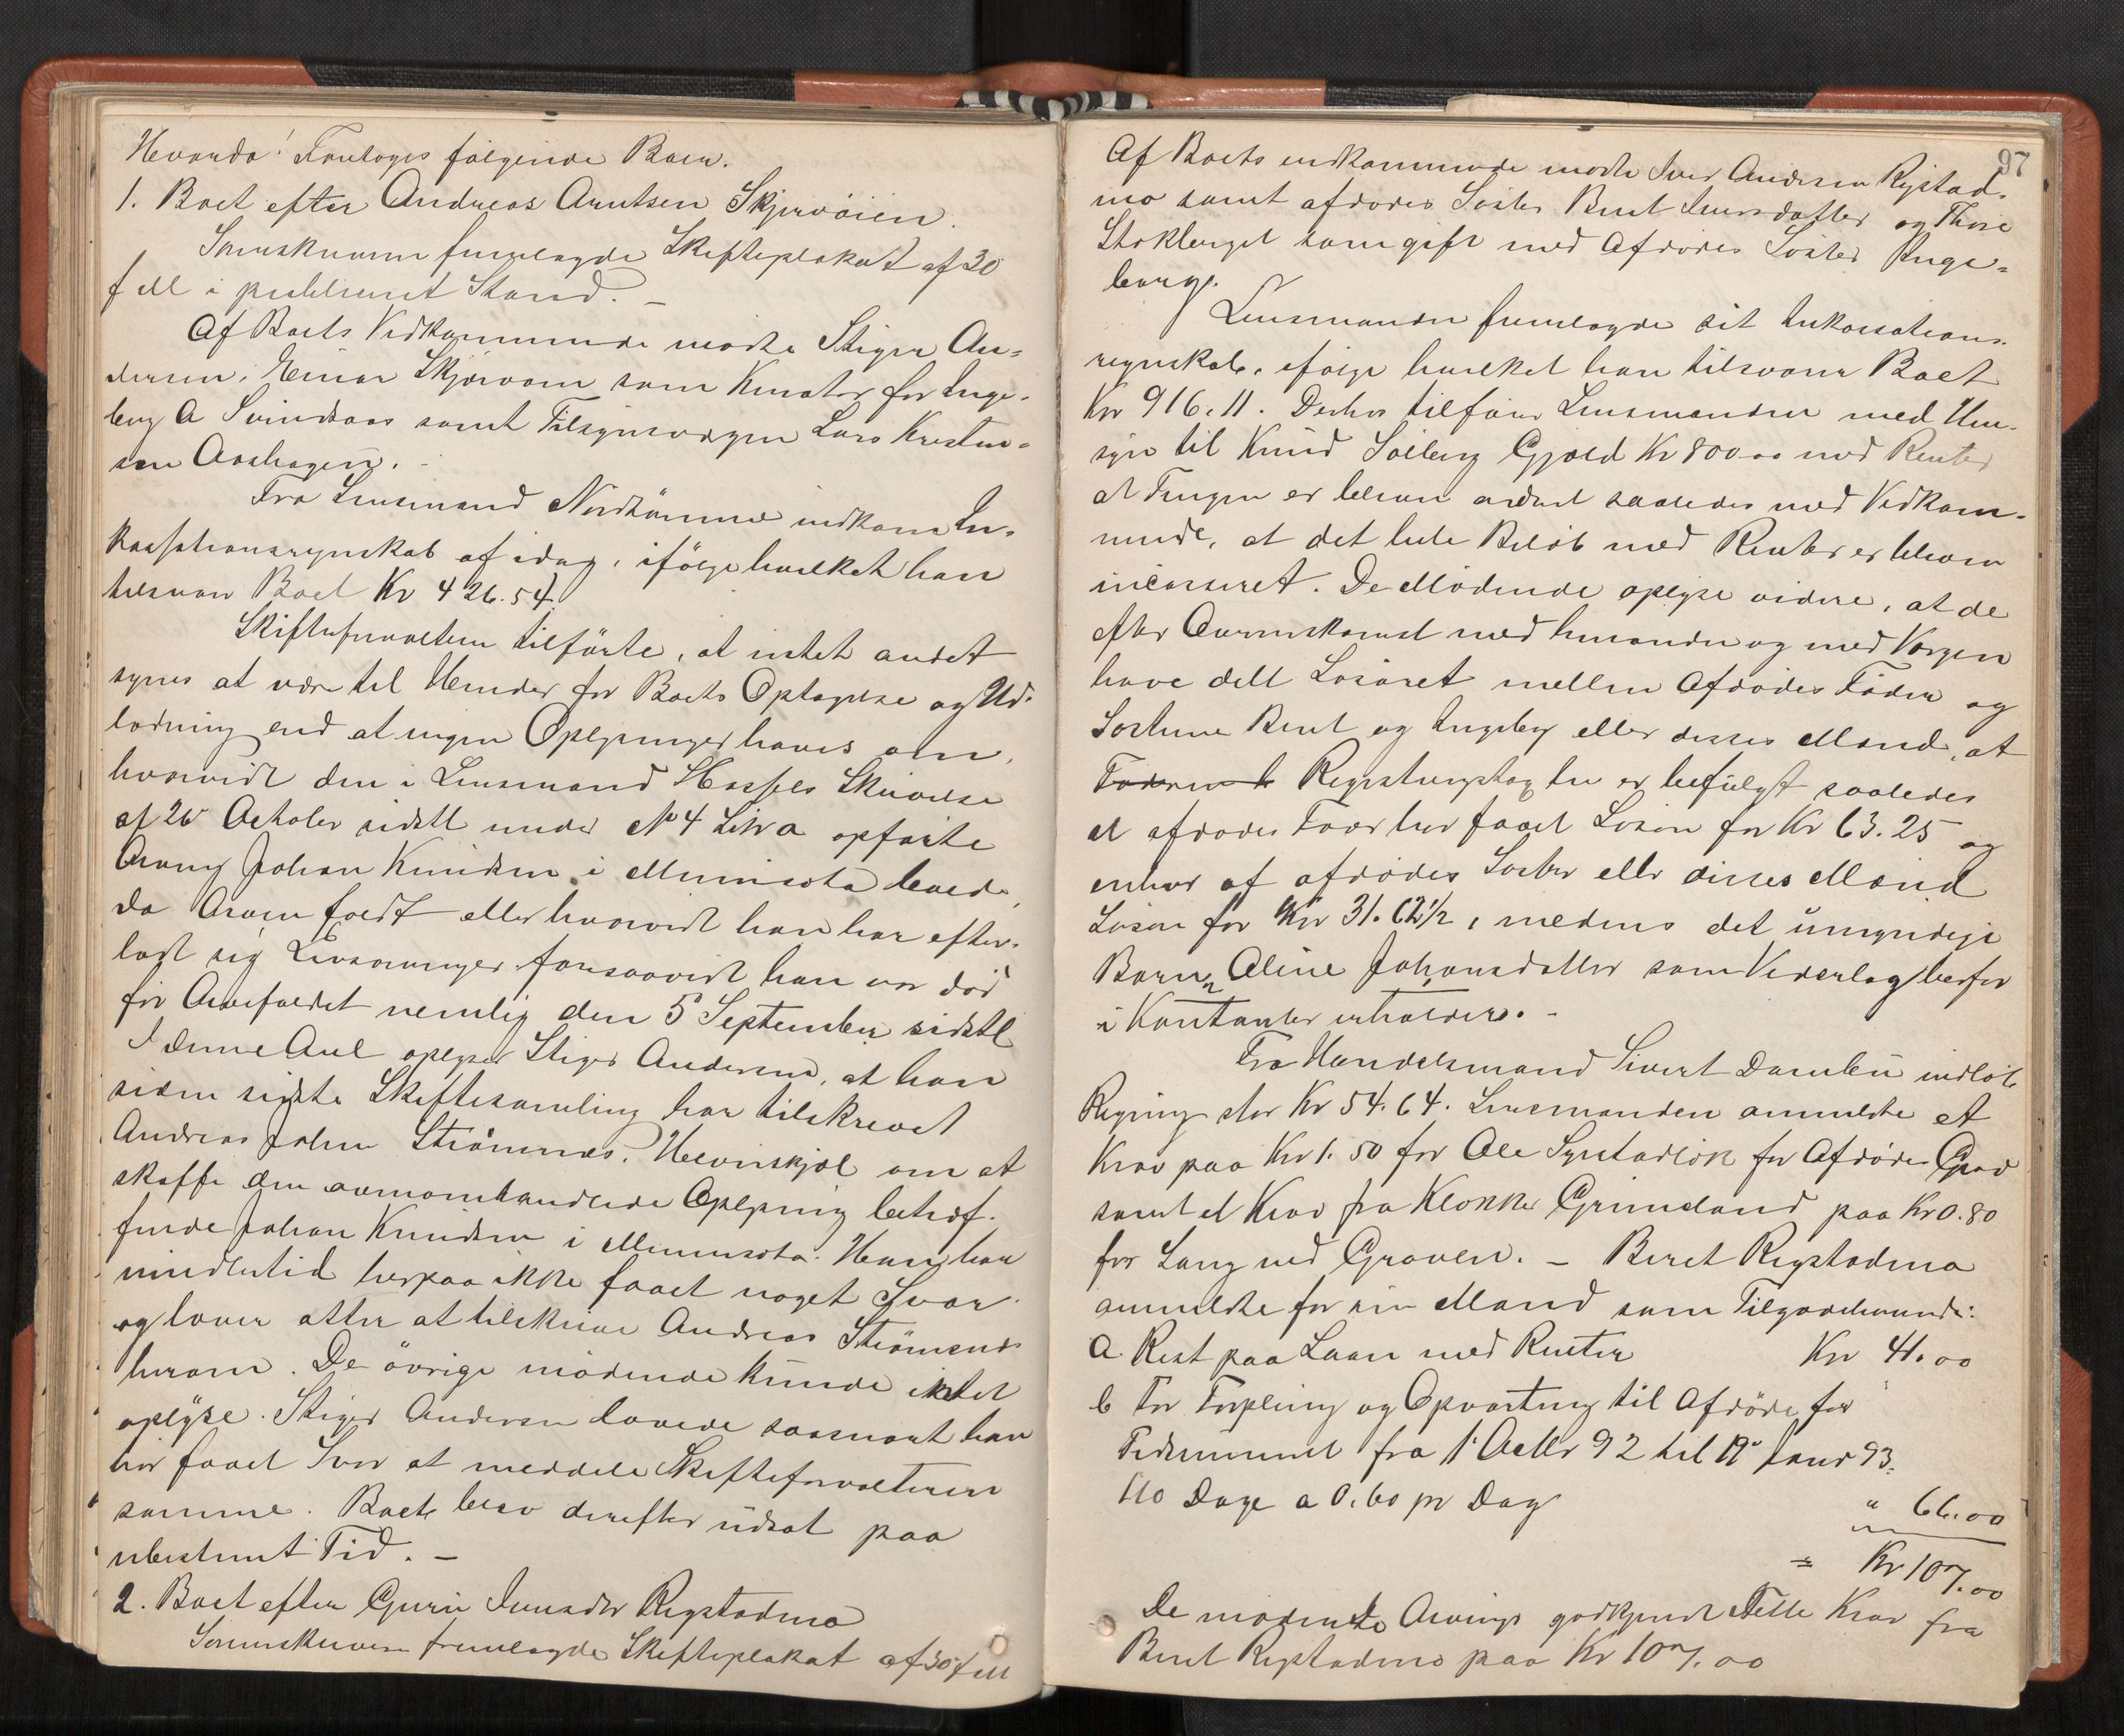 Hvorda! Foretoges følgende Boer.
1. Boet efter Andreas Arntsen Skjervøien.
Sorenskriveren fremlagde Skifteplakat af 30
f M i publiceret Stand. –
Af Boets Vedkommende mødte Stiger An-
dersen, Einar Skjørvøien som Kurator for Inge-
borg A Svindsaas samt Tilsynsværgen Lars Kristen-
sen Aashagen. –
Fra Lensmand Nordhammer indkom In-
kassationsregnskab af idag, ifölge hvilket han
tilsvarer Boet Kr 426.54.
Skifteforvalteren tilförte, at intet andet
synes at være til Hinder for Boets Optagelse og Ud-
lodning end at ingen Oplysninger haves om,
hvorvidt den i Lensmand Hassels Skrivelse
af 26 October sidstl under No 4 Litr a opførte
Arving Johan Knudsen i Minnisota levede,
da Arven faldt eller hvorvidt han har efter-
ladt sig Livsarvinger forsaavidt han var død
før Arvefaldet nemlig den 5 September sidstl
I denne Anl oplyser Stiger Andersen, at han
siden sidste Skiftesamling har tilskrevet
Andreas Johan Strömnes, Hevnskjel om at
skaffe den ovenomhandlede Oplysning betræf-
fende Johan Knudsen i Minnisota. Han har
imidlertid herpaa ikke faaet noget Svar
og lover atter at tilskrive Andreas Strömnes
herom. De övrige mödende kunde intet
oplyse. Stiger Andersen lovede saasnart han
har faaet Svar at meddele Skifteforvalteren
samme. Boet blev derefter udsat paa
ubestemt Tid. –
2. Boet efter Guru Iversdtr Rygstadmo
Sorenskriveren fremlagde Skifteplakat af 30 f M
97
Af Boets vedkommende mødte Iver Andersen Rygstad-
mo samt afdødes Søster Beret Iversdatter og Thore
Stokberget som gift med Afdødes Søster Inge-
borg.
Lensmanden fremlagde sit Inkassations-
regnskab, ifølge hvilket han tilsvarer Boet
Kr 916.11. Derhos tilfører Lensmanden med Hen-
syn til Knud Solberg Gjæld Kr 800.00 med Renter
at Tingen er bleven ordnet saaledes med Vedkom-
mende, at det hele Beløb med Renter er bleven
incasseret. De Mødende oplyse videre, at de
efter Overenskomst med hinanden og med Værgen
have delt Løsøret mellem Afdødes Fader og
Søstrene Beret og Ingeborg eller disses Mænd, at
Registreringstaxten er befulgt saaledes
at afdødes Fader har faaet Løsøre for Kr 63.25 og
enhver af afdødes Søstre eller disses Mænd
Løsøre for Kr 31.62 1/2, medens det umyndige
Barn Aline Johansdatter som Vederlag herfor
i Kontanter erholder. –
Fra Handelsmand Sivert Dambu indløb
Regning stor Kr 54.64. Lensmanden anmeldte et
Krav paa Kr 1.50 for Ole Systadløk for Afdødes Grav
samt et Krav fra Klokker Grimeland paa Kr 0.80
for Sang ved Graven. – Beret Rygstadmo
anmeldte for sin Mand som Tilgodehavende:
a. Rest paa Laan med Renter Kr 41.00
b For Forpleining og Opvartning til Afdøde for
Tidsrummet fra 1 Octbr 92 til 19 Janr 93,
110 Dage a 0.60 pr Dag " 66.00
= Kr 107.00
De mødende Arvinge godkjendte dette Krav fra
Beret Rygstadmo paa Kr 107.00